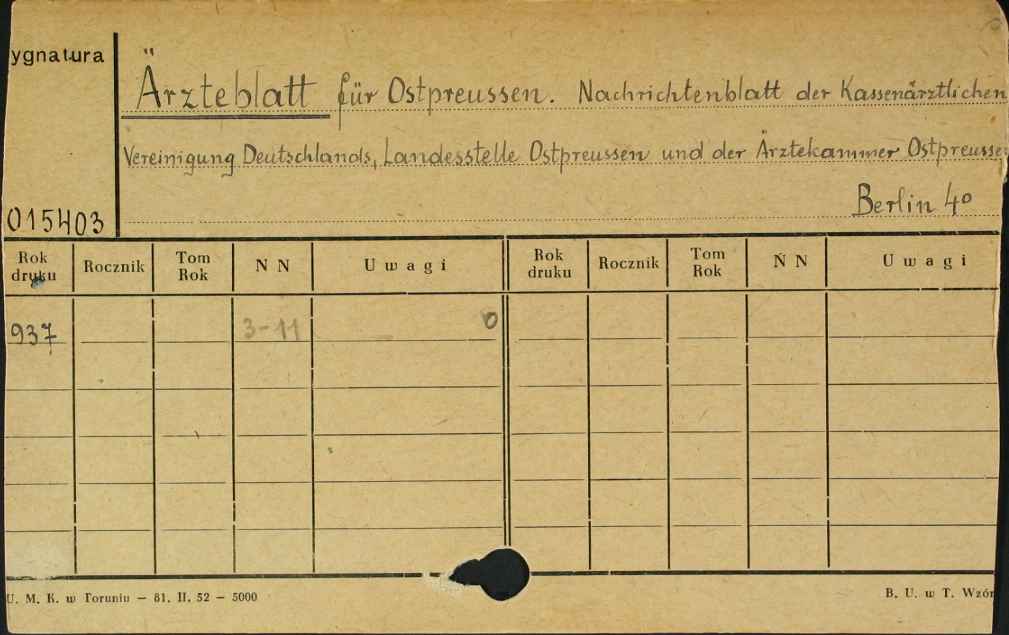 ygnatura
Ärzteblatt für Ostpreussen. Nachrichtenblatt der Kassenärztlichen
Vereinigung Deutschlands, Landesstelle Ostpreussen und der Ärztekammer Ostpreusse
Berlin 4°
015403
Rok druku Rocznik Tom Rok N N Uwagi Rok druku Rocznik Tom Rok N N Uwagi
937 3-11 0
U. M. K. w Toruniu — 81. II. 52 — 5000 B. U. w T. Wzór